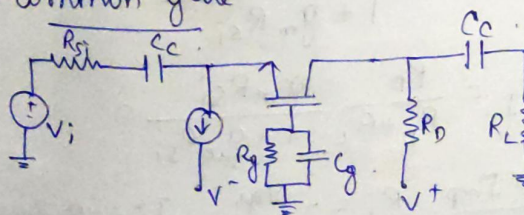 common gate
Rsi Cc Cc
Vi Rg Cg RD RL
V- V+